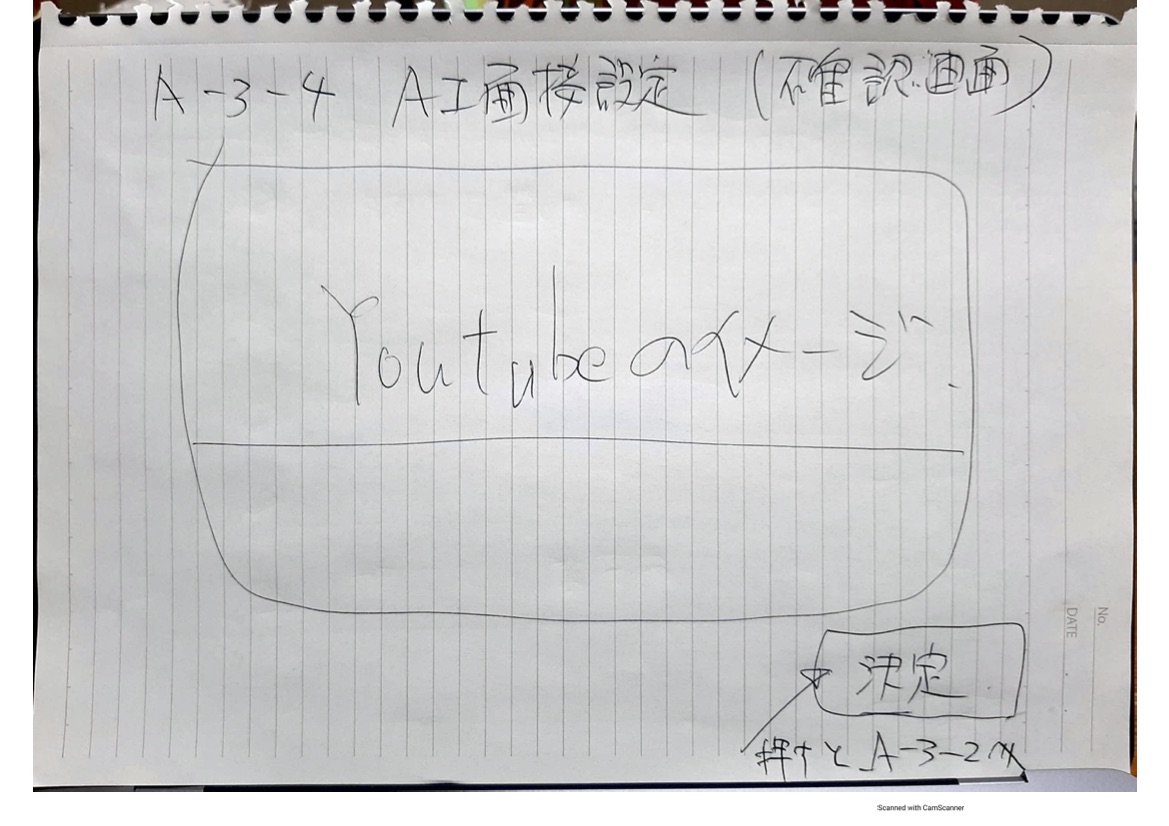 A-3-4 AI面接設定 (確認画面)
Youtubeのイメージ
決定
押すと A-3-2へ
No.
DATE
Scanned with CamScanner